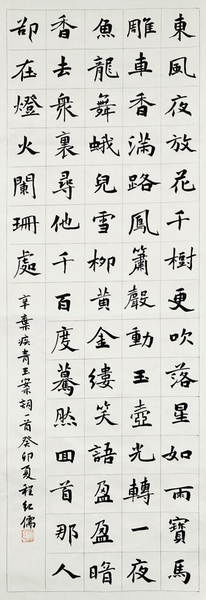 東風夜放花千樹更吹落星如雨寶馬
雕車香滿路鳳簫聲動玉壺光轉一夜
魚龍舞蛾兒雪柳黃金縷笑語盈盈暗
香去衆裏尋他千百度驀然回首那人
卻在燈火闌珊處
辛棄疾青玉案詞一首癸卯夏程紅儒